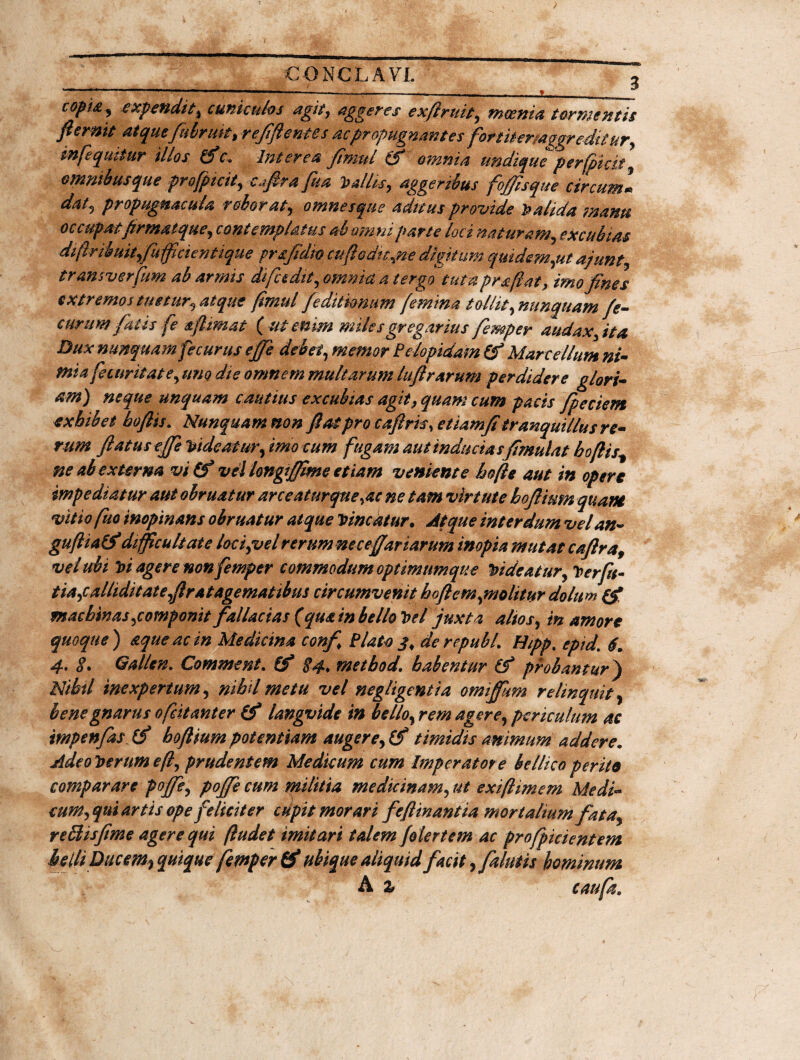 CONCLAVI. 3
copiæ, expendit, cuniculos agit, aggeres exſtruit, mœnia tormentis
ſternit atque ſubruit, reſiſtentes ac propugnantes fortiter aggreditur,
inſequitur illos &c. Interea ſimul & omnia undique perſpicit,
omnibusque proſpicit, caſtra ſua vallis, aggeribus foſſisque circum-
dat, propugnacula roborat, omnesque aditus provide valida manu
occupat firmatque, contemplatus ab omni parte loci naturam, excubias
diſtribuit, ſufficientique præſidio cuſtodit, ne digitum quidem, ut ajunt,
transverſum ab armis diſcedit, omnia a tergo tuta præſtat, imo fines
extremos tuetur, atque ſimul ſeditionum ſemina tollit, nunquam ſe-
curum ſatis ſe æſtimat ( ut enim miles gregarius ſemper audax, ita
Dux nunquam ſecurus eſſe debet, memor Pelopidam & Marcellum ni-
mia ſecuritate, uno die omnem multarum luſtrarum perdidere glori-
am) neque unquam cautius excubias agit, quam cum pacis ſpeciem
exhibet hoſtis. Nunquam non ſtat pro caſtris, etiamſi tranquillus re-
rum ſtatus eſſe videatur, imo cum fugam aut inducias ſimulat hoſtis,
ne ab externa vi & vel longiſſime etiam veniente hoſte aut in opere
impediatur aut obruatur arceaturque, ac ne tam virtute hoſtium quam
vitio ſuo inopinans obruatur atque vincatur. Atque interdum vel an-
guſtia & difficultate loci, vel rerum neceſſariarum inopia mutat caſtra,
vel ubi vi agere non ſemper commodum optimumque videatur, verſu-
tia, calliditate, ſtratagematibus circumvenit hoſtem, molitur dolum &
machinas, componit fallacias (qua in bello vel juxta alios, in amore
quoque ) æque ac in Medicina conf. Plato 3. de republ. Hipp. epid. 6.
4. 8. Gallen. Comment. & 84. method. habentur & probantur )
Nihil inexpertum, nihil metu vel negligentia omiſſum relinquit,
bene gnarus oſcitanter & langvide in bello, rem agere, periculum ac
impenſas & hoſtium potentiam augere, & timidis animum addere.
Adeo verum eſt, prudentem Medicum cum Imperatore bellico perito
comparare poſſe, poſſe cum militia medicinam, ut exiſtimem Medi-
cum, qui artis ope feliciter cupit morari feſtinantia mortalium fata,
rectiſſime agere qui ſtudet imitari talem ſolertem ac proſpicientem
belli Ducem, quique ſemper & ubique aliquid facit, ſalutis hominum
A 2 cauſa.